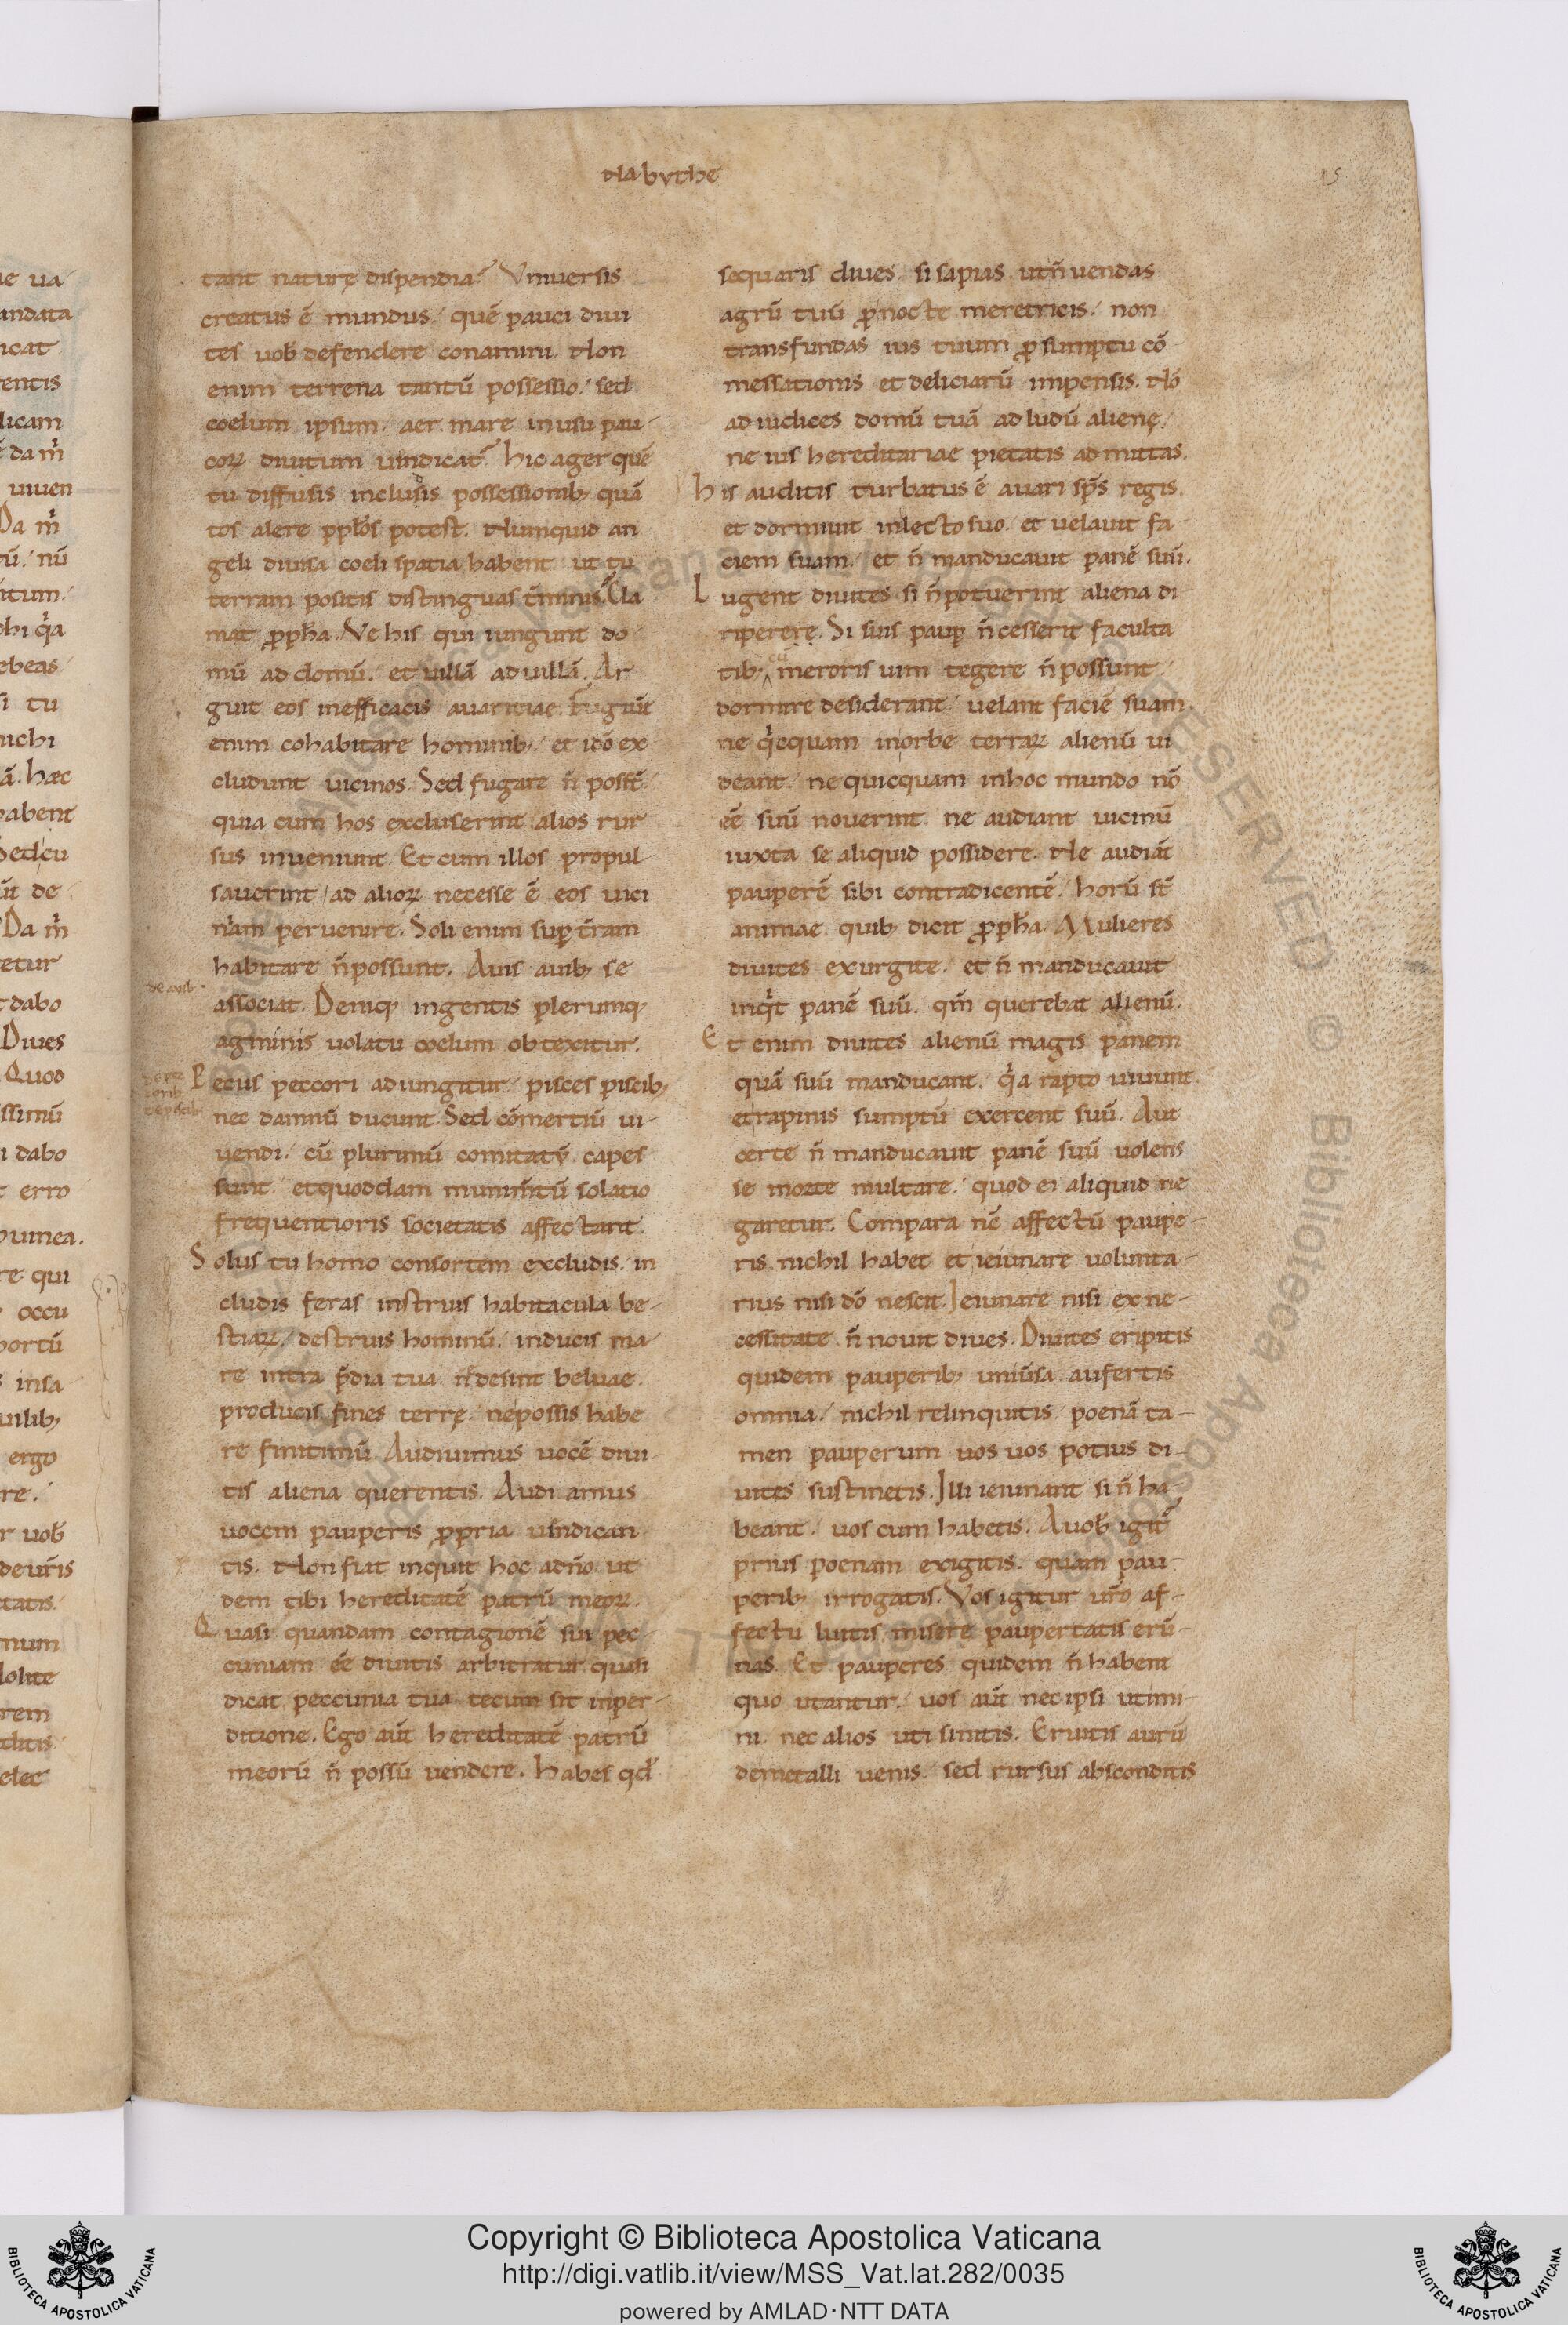 Nabvthe
15
tant naturę dispendia? Vniuersis
creatus ē mundus. quē pauci diui
tes uob̄ defendere conamini. Non
enim terrena tantū possessio. sed
coelum ipsum. aer. mare in usu pau-
corꝝ diuitum uindicat? hic ager quē
tu diffusis inclusis possessionib; quā
tos alere pp̄los potest. Nunquid an
geli diuisa coeli spatia habent. ut tu
terram positis distinguas t̄minis? Cla
mat ꝓph̄a. Ve his qui iungunt do
mū ad domū. et uillā ad uillā. Ar
guit eos inefficacis auaritiae. Fugiūt
enim cohabitare hominib;. et idō ex
cludunt uicinos. Sed fugare n̄ posst̄.
quia cum hos excluserint. alios rur
sus inueniunt. Et cum illos propul
sauerint ad aliorꝝ necesse ē eos uici
niam peruenire. Soli enim suꝑ t̄ram
habitare n̄ possunt. Auis auib; se
de auib.
associat. Deniq; ingentis plerumq;
agminis uolatu coelum obtexitur.
Pecus peccori adiungitur. pisces piscib;
nec damnū ducunt. Sed cōmertiū ui-
uendi. cū plurimū comitatū capes
sunt. et quoddam munimt̄ū solatio
frequentioris societatis affectant.
Solus tu homo consortem excludis. in
cludis feras instruis habitacula be-
stiarꝝ. destruis hominū. inducis ma-
re intra p̄dia tua n̄ desint beluae.
producis fines terrę. ne possis habe
re finitimū. Audiuimus uocē diui-
tis aliena querentis. Audiamus
uocem pauperis ꝓpria uindican
tis. Non fiat inquit hoc a dn̄o ut
dem tibi hereditatē patrū meorꝝ.
Quasi quandam contagionē sui pec
cuniam ēe diuitis arbitratur. quasi
dicat. peccunia tua tecum sit in per-
ditione. Ego aūt hereditatē patrū
meorū n̄ possū uendere. Habes qd̄
sequaris diues. si sapias. ut n̄ uendas
agrū tuū ꝓ nocte meretricis. non
transfundas ius tuum ꝓ sumptu cō
messationis et deliciarū impensis. Nō
adiudices domū tuā ad ludū alienę.
ne ius hereditariae pietatis admittas.
his auditis turbatus ē auari sp̄s regis.
et dormiuit in lecto suo. et uelauit fa
ciem suam. et n̄ manducauit panē suū.
Lugent diuites si n̄ potuerint aliena di
riperere. Si suis pauꝑ n̄ cesserit faculta
tib;. cū meroris uim tegere n̄ possunt.
dormire desiderant. uelant faciē suam.
ne qͥcquam in orbe terrarꝝ alienū ui
deant. ne quicquam in hoc mundo nō
ēe suū nouerint. ne audiant uicinū
iuxta se aliquid possidere. Ne audiāt
pauperē sibi contradicentē. horū st̄
animae. quib; dicit ꝓph̄a. Mulieres
diuites exurgite. et n̄ manducauit
inqͥt panē suū. qm̄ querebat alienū.
Et enim diuites alienū magis panem
quā suū manducant. qͥa rapto uiuunt.
et rapinis sumptū exercent suū. Aut
certe n̄ manducauit panē suū uolens
se morte multare. quod ei aliquid ne
garetur. Compara nc̄ affectū paupe-
ris. nichil habet et ieiunare uolunta-
rius nisi dō nescit. Ieiunare nisi ex ne-
cessitate n̄ nouit diues. Diuites eripitis
quidem pauperib; uniūsa. aufertis
omnia. nichil relinquitis. poenā ta-
men pauperum uos uos potius di-
uites sustinetis. Illi ieiunant si n̄ ha
beant. uos cum habetis. A uob̄ igit̄
prius poenam exigitis. quam pau-
perib; irrogatis. Vos igitur ur̄o af-
fectu luitis misere paupertatis erū-
nas. Et pauperes quidem n̄ habent
quo utantur. uos aūt nec ipsi utimi-
ni. nec alios uti sinitis. Eruitis aurū
de metalli uenis. sed rursus absconditis
Copyright © Biblioteca Apostolica Vaticana
http://digi.vatlib.it/view/MSS_Vat.lat.282/0035
powered by AMLAD·NTT DATA
BIBLIOTECA APOSTOLICA VATICANA
BIBLIOTECA APOSTOLICA VATICANA